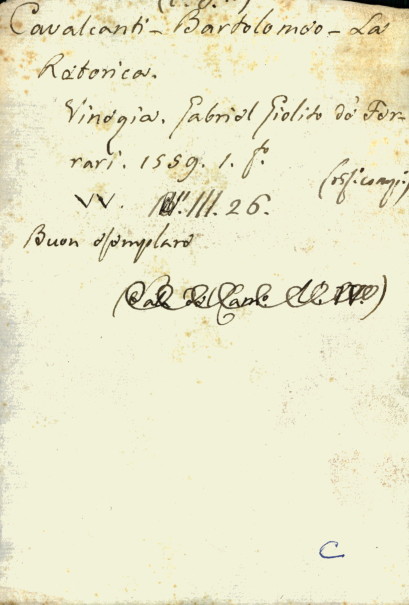 Cavalcanti - Bartolomeo - La
Retorica.
Vinegia. Gabriel Giolito de' Fer-
rari. 1559. 1. f.to
VV. III. 26.
Buon esemplare
C